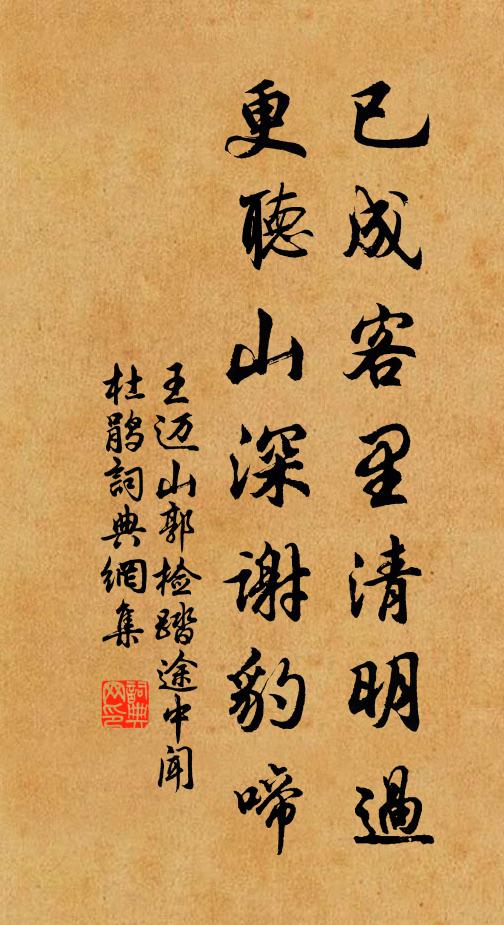 已成客里清明過
更聽山深謝豹啼
王迈山郭检踏途中闻
杜鹃詞典網集
詞典网印